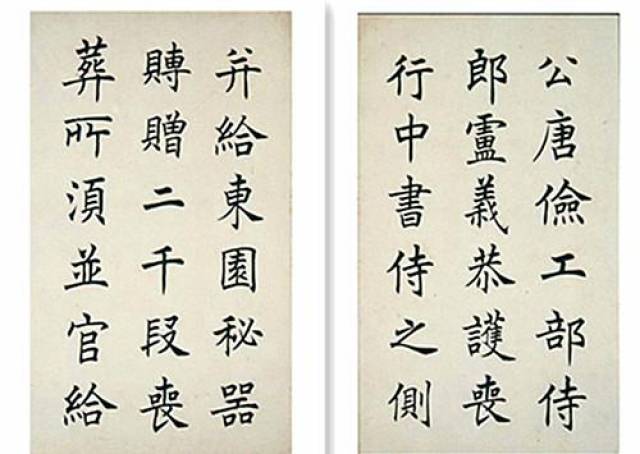 公唐儉工部侍
郎盧義恭護喪
行中書侍之側
并給東園秘器
賻贈二千段喪
葬所湏並官給